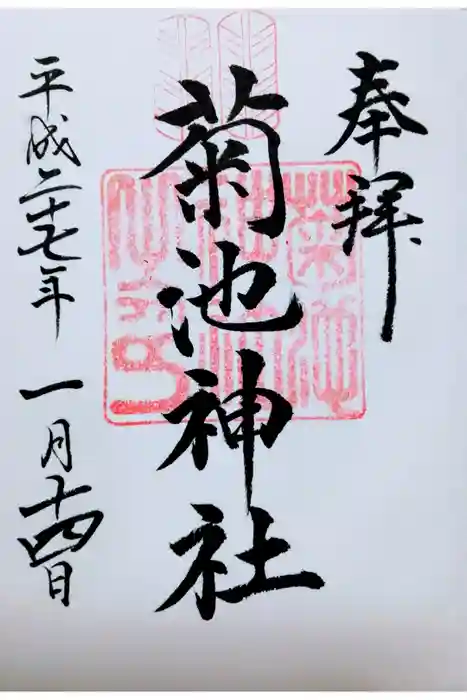 奉拝
菊池神社
平成二十七年 一月十四日